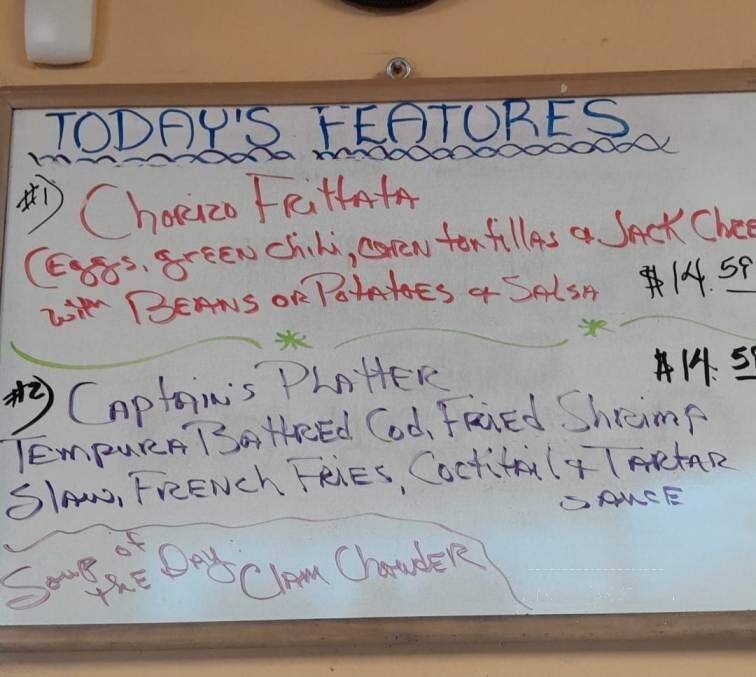 TODAY'S FEATURES
#1) Chorizo Frittata
(Eggs, green chili, corn tortillas & Jack Chee
with Beans or Potatoes & Salsa $14.59
#2) Captain's Platter $14.59
Tempura Battred Cod, Fried Shrimp
Slaw, French Fries, Coctitail & Tartar
Sauce
Soup of the Day Clam Chowder